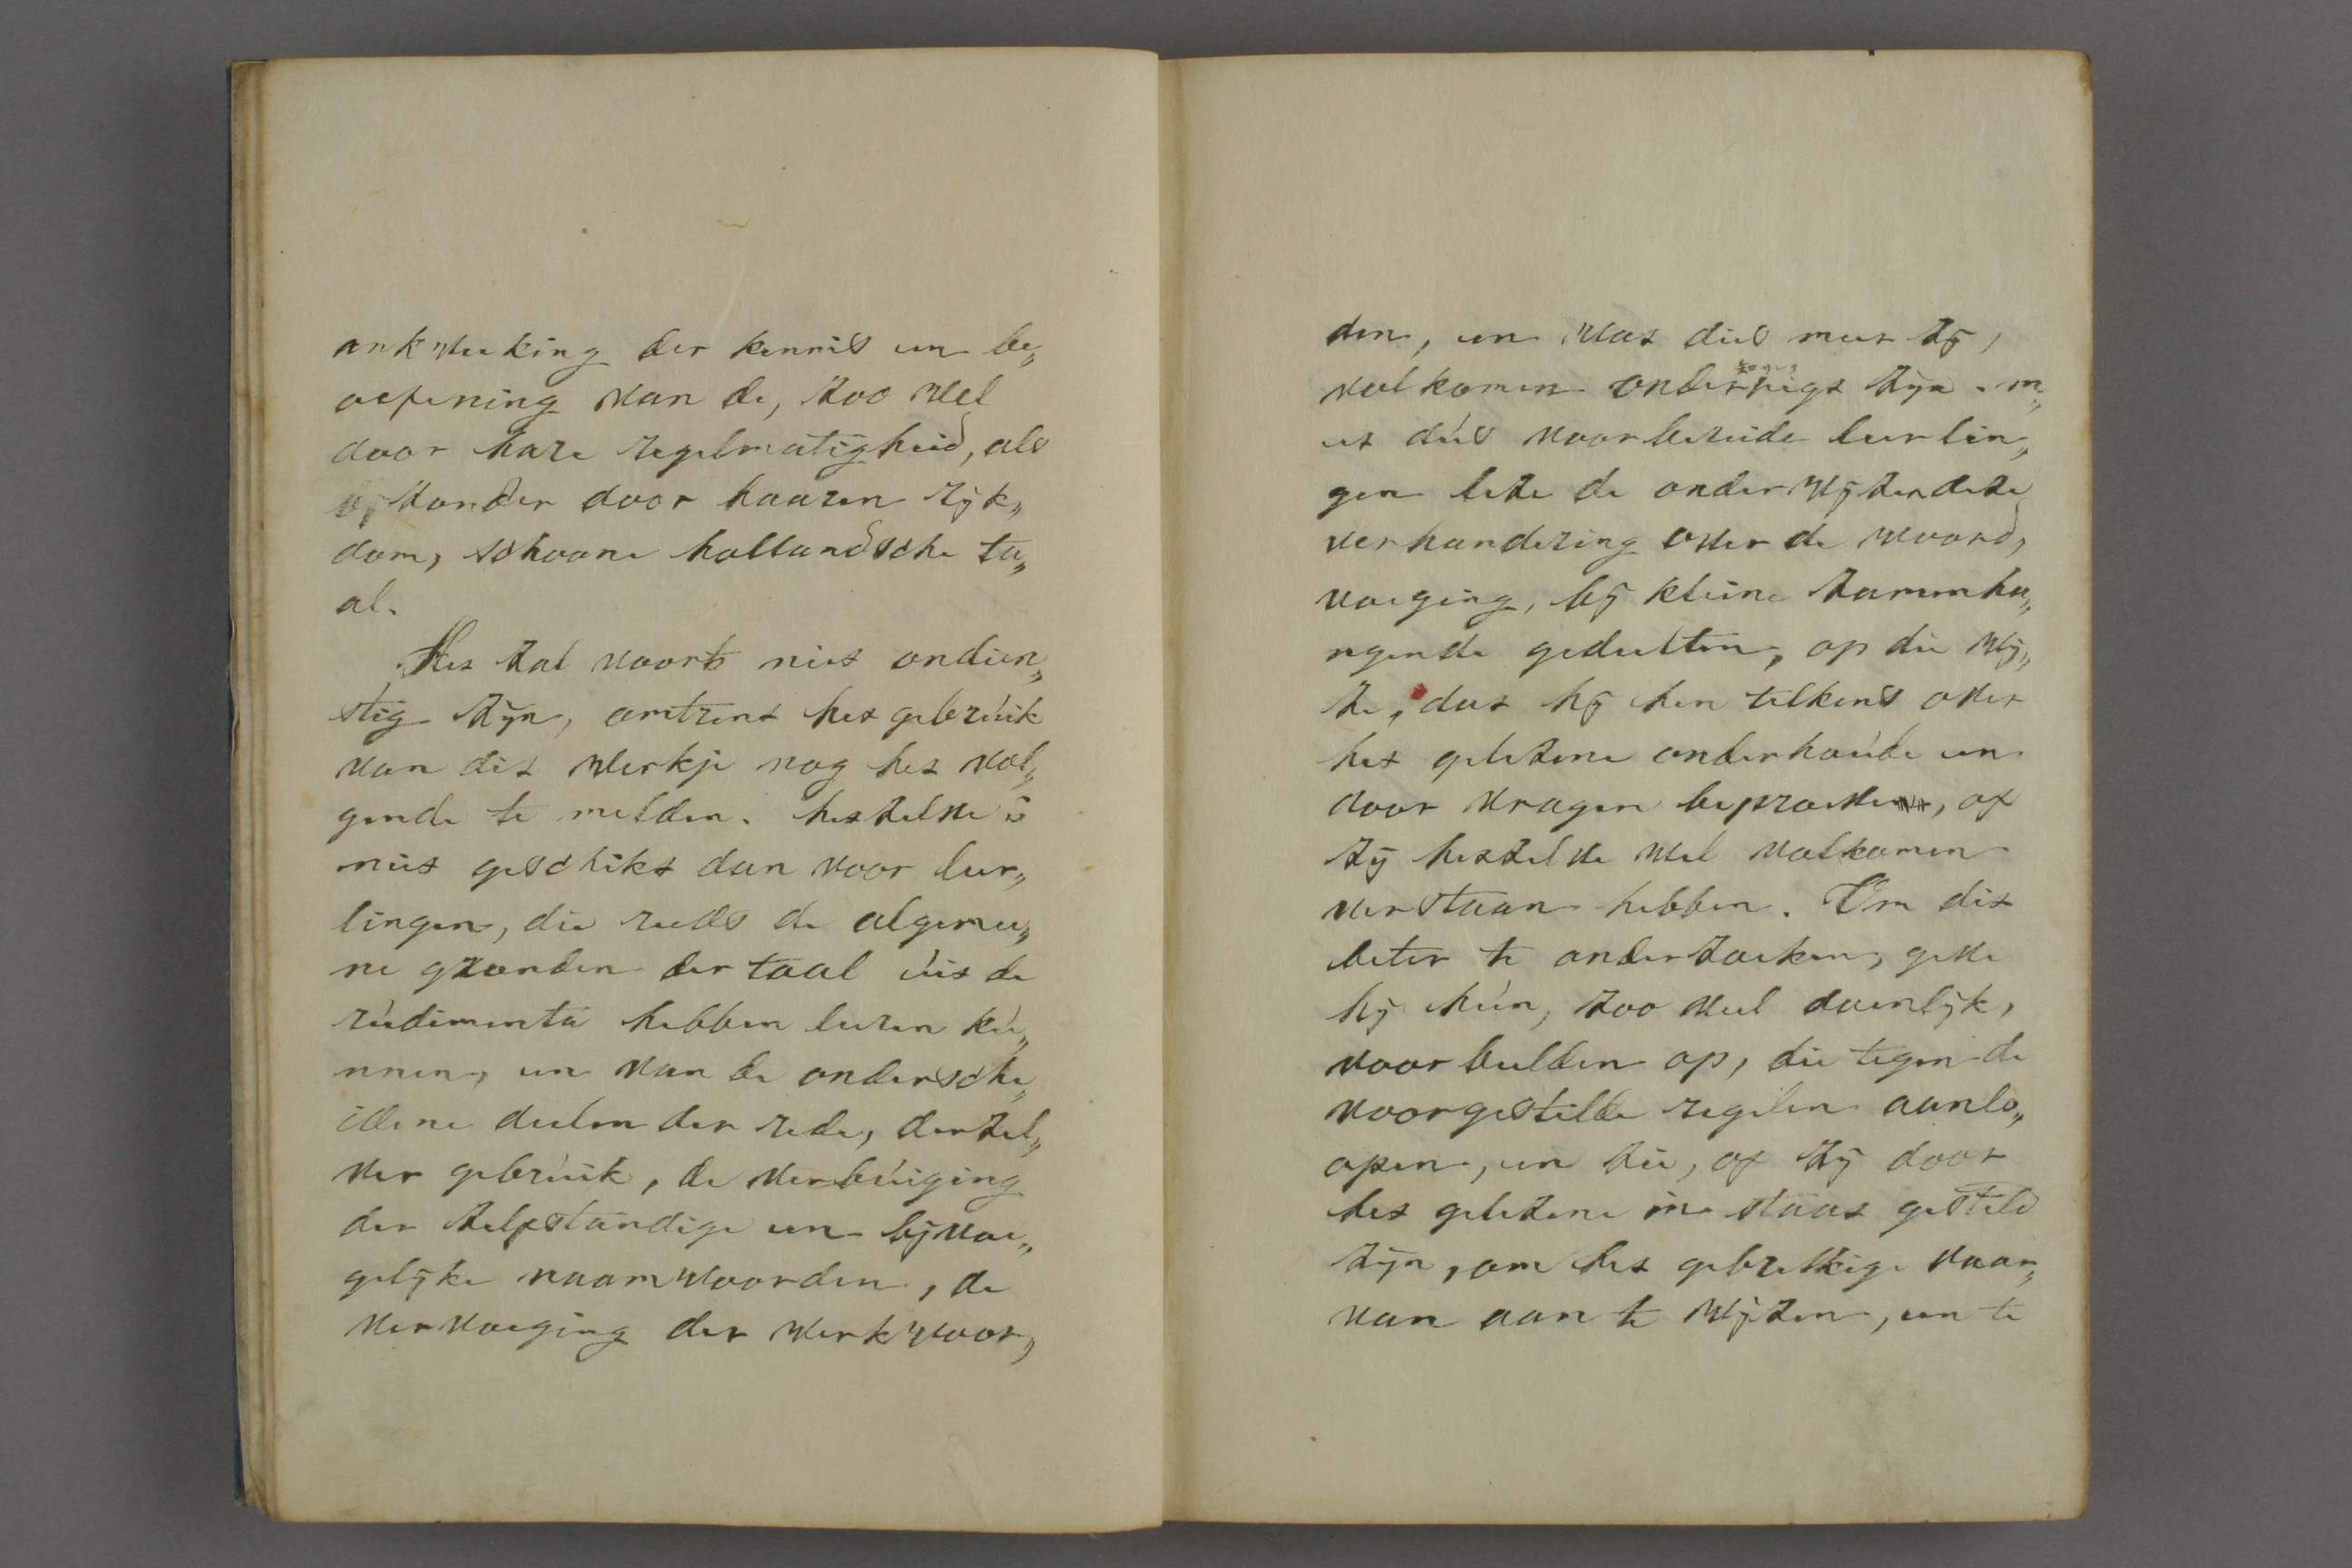 ankweeking der kennis en be„
oefening van de, zoo wel
door hare regelmatigheid, als
bijzonder door haaren rijk„
dom, schoone hollandsche ta„
al.
Het zal voorts niet ondien„
stig zijn, omtrent het gebruik
van dit werkje nog het vol„
gende te melden. hetzelve is
niet geschikt dan voor leer„
lingen, die reeds de algemee„
ne gronden der taal uit de
rudimenta hebben leeren ke„
nnen, en van de ondersche„
idene deelen der rede, derzel„
ver gebruik, de verbuiging
der zelfstandige en bijvoe„
gelijke naamwoorden, de
vervoeging der werkwoor„
den, en wat dies meer zij,
volkomen onderrigt zijn. m„
et dús voorbereide leerlin„
gen leze de onderwijzer deze
verhandering over de woord„
voeging, bij kleine zamenha„
ngende gedeelten, op die wij„
ze, dat hij hen telkens over
het gelezene onderhoude en
door vragen beproeve, of
zij hetzelve wel volkomen
verstaan hebben. Om dit
beter te onderzoeken, geve
hij hún, zoo veel doenlijk,
voorbeelden op, die tegen de
voorgestelde regelen aanlo„
open, en zie, of zij door
het gelezene in staat gesteld
zijn, om het gebrekkige daar„
van aan te wijzen, en te